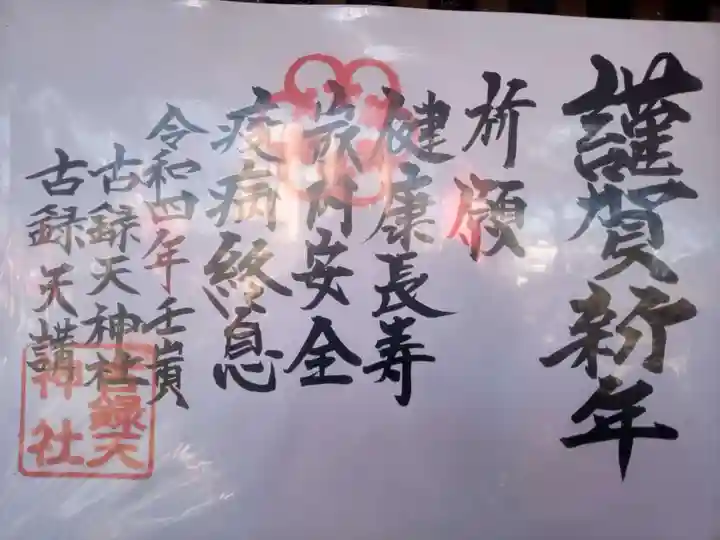 謹賀新年
祈願
健康長寿
家内安全
疫病終息
令和四年壬寅
古録天神社
古録天講
古録天
神社